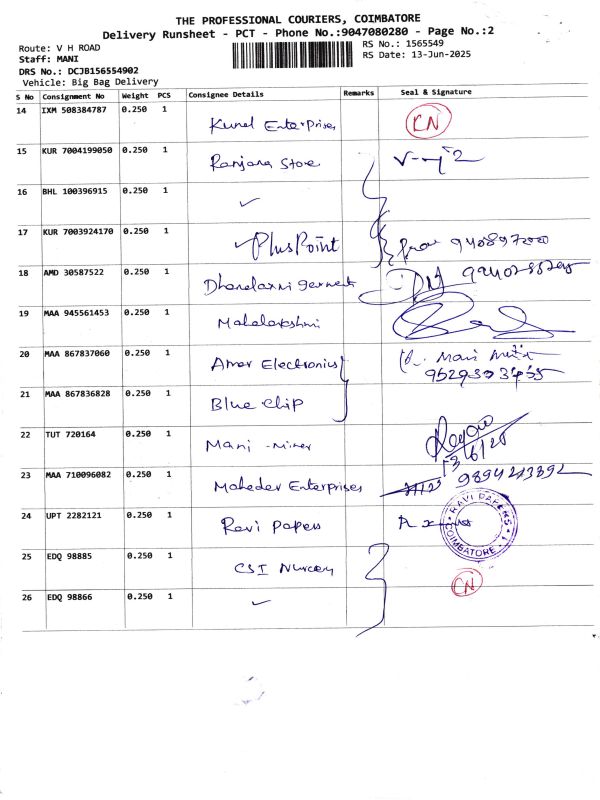 THE PROFESSIONAL COURIERS, COIMBATORE
Delivery Runsheet - PCT - Phone No.:9047080280 - Page No.:2
Route: V H ROAD
RS No.: 1565549
Staff: MANI
RS Date: 13-Jun-2025
DRS No.: DCJB156554902
Vehicle: Big Bag Delivery
S No Consignment No Weight PCS Consignee Details Remarks Seal & Signature
14 IXM 508384787 0.250 1 Kunal Enterprises CN
15 KUR 7004199050 0.250 1 Ranjana Store
16 BHL 100396915 0.250 1 ✓
17 KUR 7003924170 0.250 1 ✓ Plus Point
18 AMD 30587522 0.250 1 Dhanalaxmi
19 MAA 945561453 0.250 1 Mahalakshmi
20 MAA 867837060 0.250 1 Amar Electronics Mani
21 MAA 867836828 0.250 1 Blue chip
22 TUT 720164 0.250 1 Mani 13/6/25
23 MAA 710096082 0.250 1 Mahadev Enterprises
24 UPT 2282121 0.250 1 Ravi Papers RAVI PAPERS COIMBATORE - 1
25 EDQ 98885 0.250 1 CSI Nursery
26 EDQ 98866 0.250 1 ✓ CN